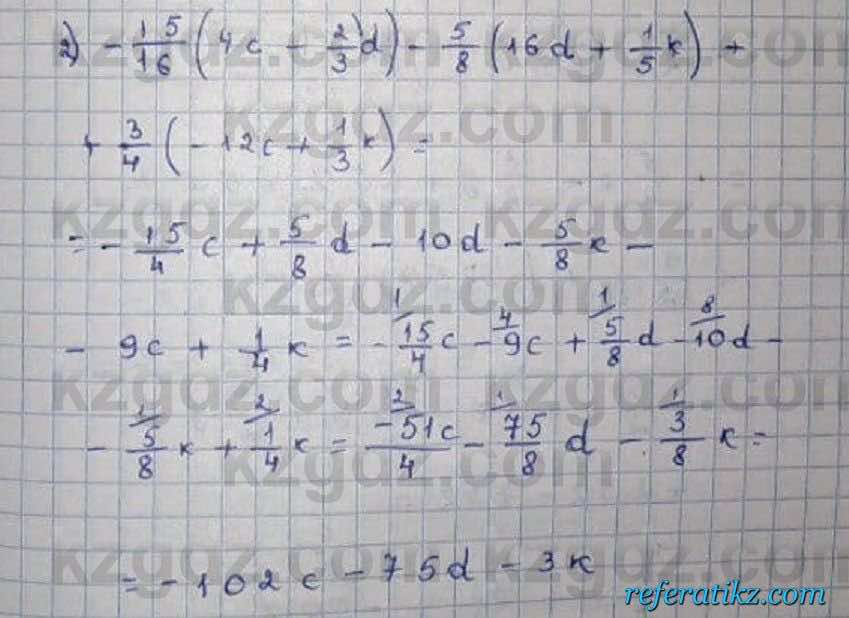 2) - 15/16 (4c - 2/3 d) - 5/8 (16d + 1/5 к) +
+ 3/4 (- 12c + 1/3 к) =
= - 15/4 c + 5/8 d - 10d - 5/8 к -
- 9c + 1/4 к = - 1/ 15/4 c - 4/ 9c + 1/ 5/8 d - 8/ 10d -
- 1/ 5/8 к + 2/ 1/4 к = 2/ -51c/4 - 1/ 75/8 d - 1/ 3/8 к =
= - 102c - 75d - 3к
kzgdz.com
referatikz.com